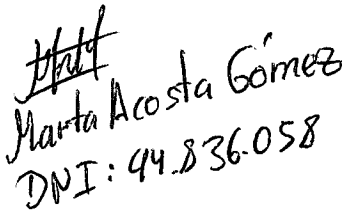 Marta Acosta Gómez
DNI: 44.836.058